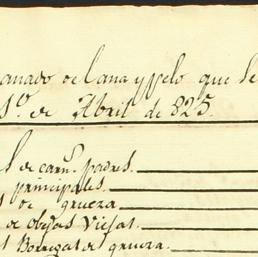 anado de lana y pelo que se
1º de Abril de 825.
s de carn.s padres
principales
s de grueza
s de obejas Viejas
s Borregas de grueza